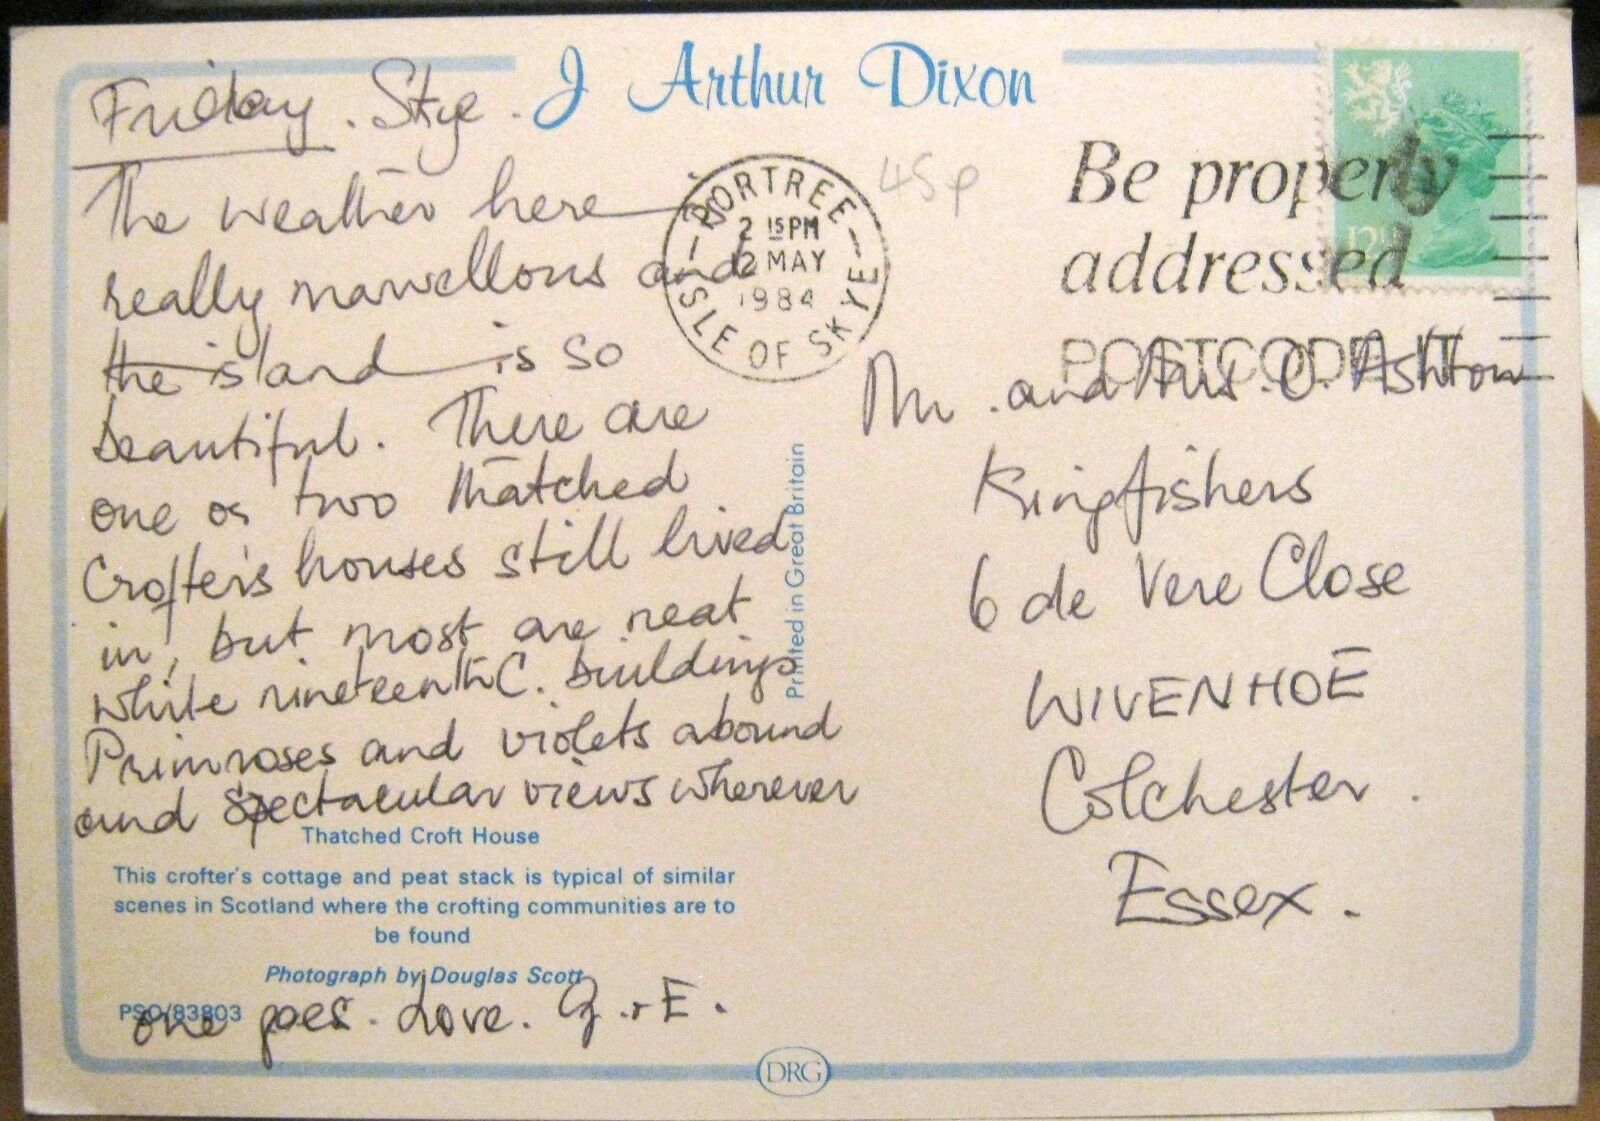 J Arthur Dixon
Friday. Skye.
The weather here is
really marvellous and
the island is so
beautiful. There are
one or two thatched
Crofter's houses still lived
in, but most are neat
white nineteenth C. buildings
Primroses and violets abound
and spectacular views wherever
one goes. Love. G. + E.
Thatched Croft House
This crofter's cottage and peat stack is typical of similar
scenes in Scotland where the crofting communities are to
be found
Photograph by Douglas Scott
PSO/83803
Printed in Great Britain
DRG
PORTREE
2 15PM
12 MAY
1984
ISLE OF SKYE
45p
Be properly
addressed
POSTCODE IT
Mr. and Mrs. O. Ashton
Kingfishers
6 de Vere Close
WIVENHOE
Colchester.
Essex.